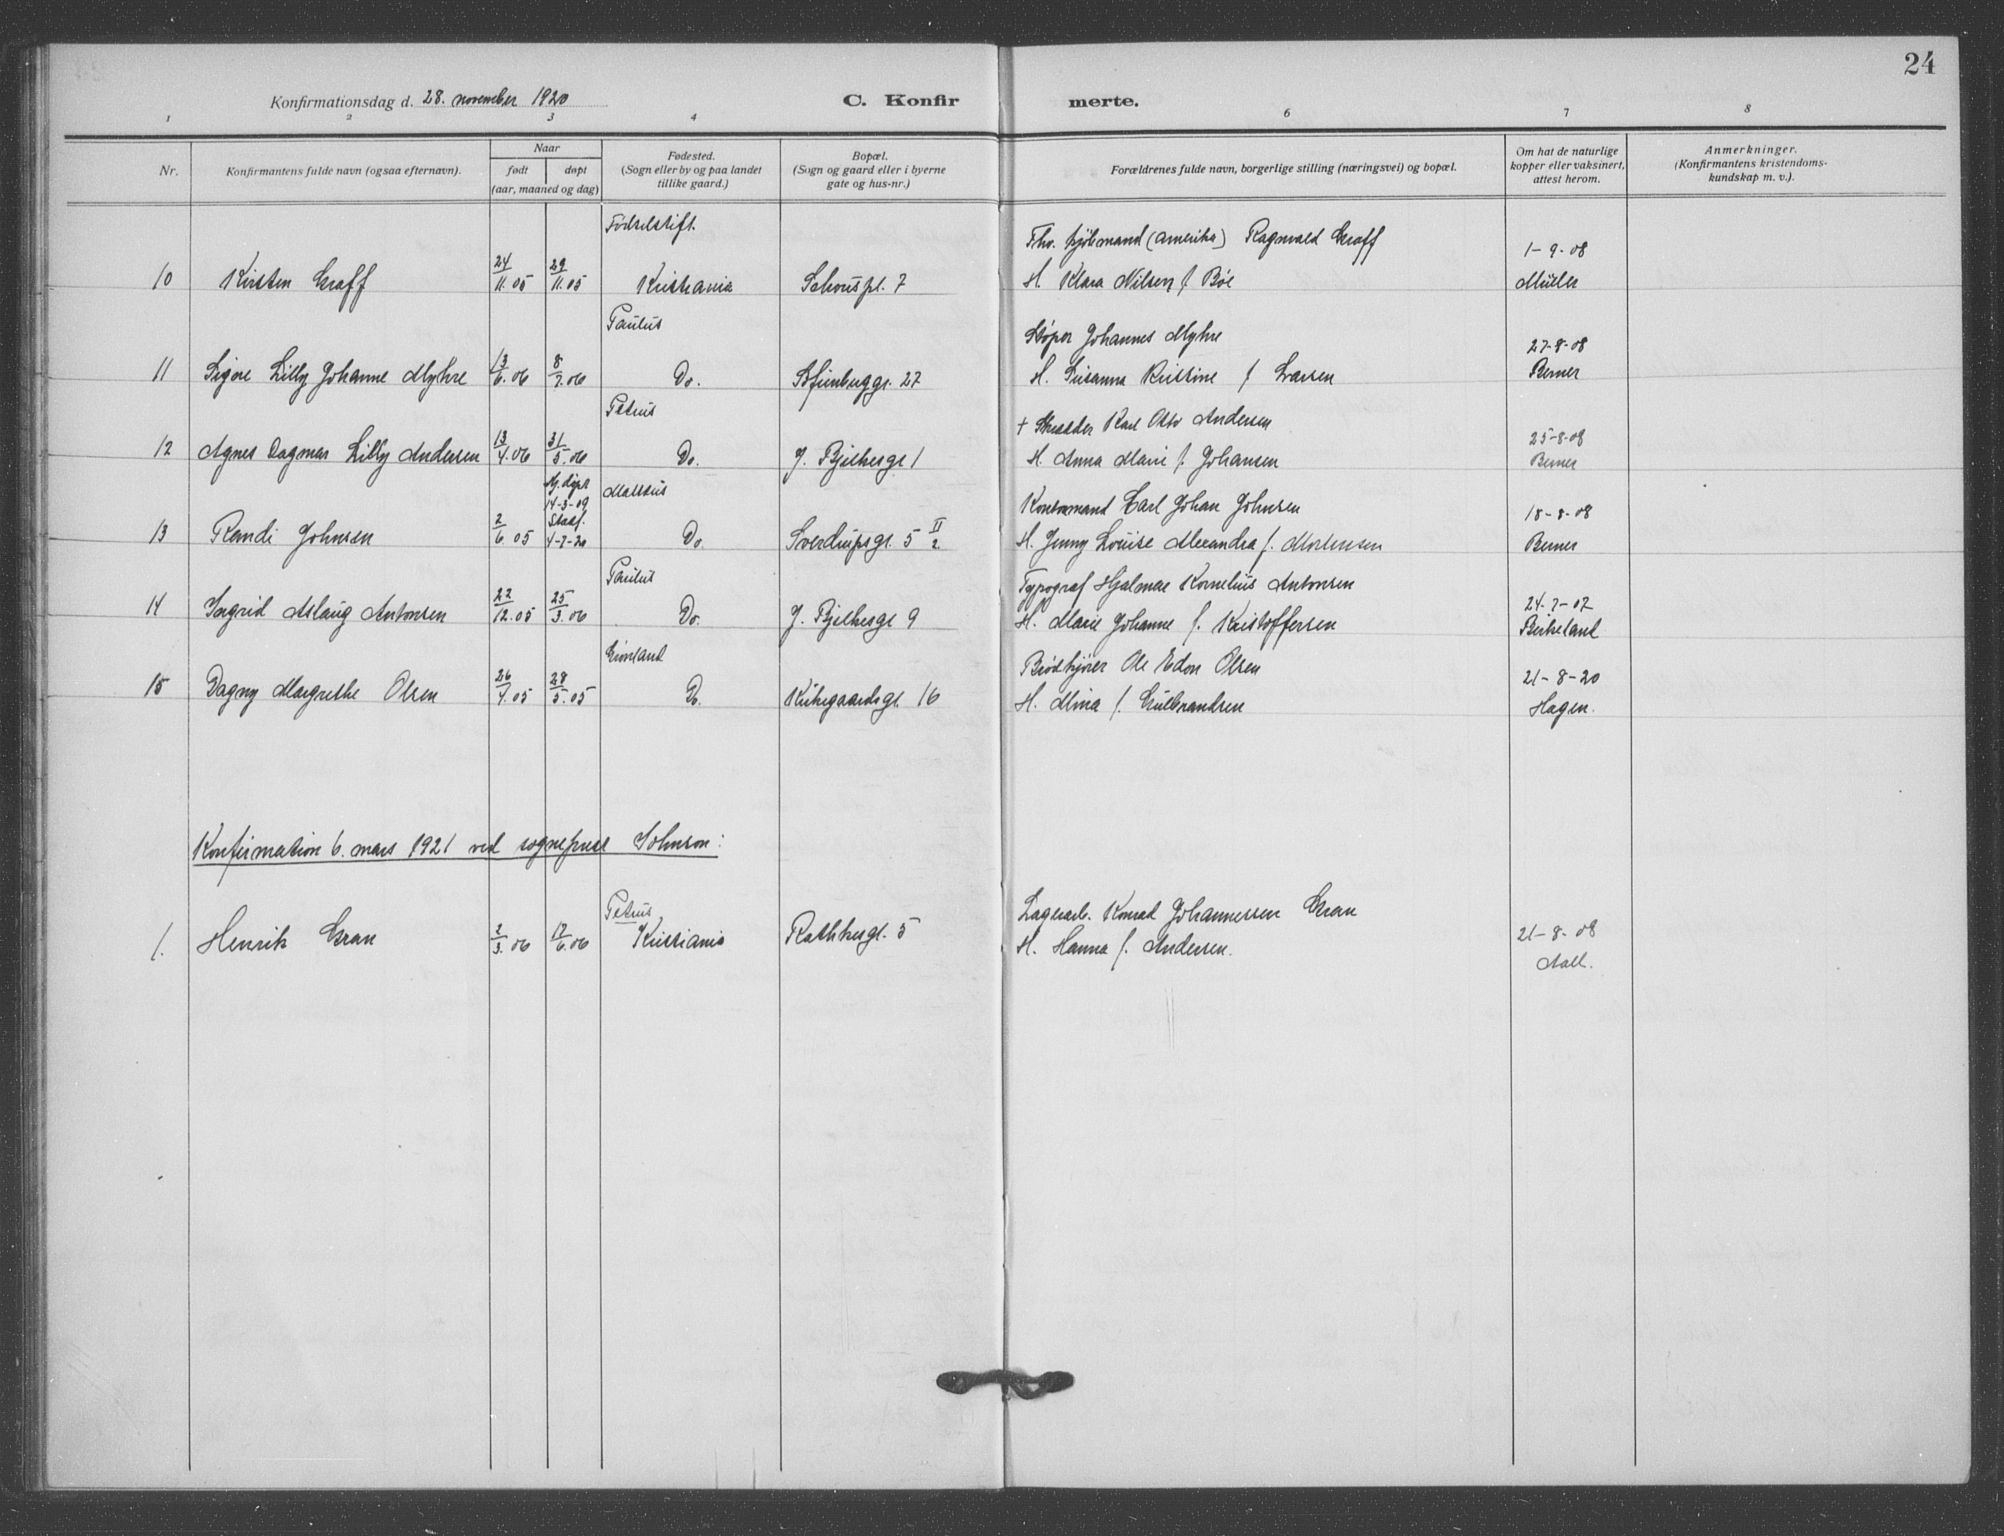 24
Konfirmationsdag d. 28. november 1920
C. Konfir merte.
1 2 3 4 6 7 8
Nr.
Konfirmantens fulde navn (ogsaa efternavn).
Naar
født døpt
(aar, maaned og dag)
Fødested.
(Sogn eller by og paa landet
tillike gaard.)
Bopæl.
(Sogn og gaard eller i byerne
gate og hus-nr.)
Forældrenes fulde navn, borgerlige stilling (næringsvei) og bopæl.
Om hat de naturlige
kopper eller vaksinert,
attest herom.
Anmerkninger.
(Konfirmantens kristendoms-
kundskap m. v.).
Fødselstift. Fhv. (Amerika) Ragnvald Graff 1-9-08
10 Kirsten Graff 24/11.05 29/11.05 Kristiania Schouspl. 7 H. Klara Nilsen f. Bøe Müller
Paulus Støper Johannes Myhre 27-8-08
11 Signe Lilly Johanne Myhre 13/6.06 8/7.06 Do. Sofienberggt. 27 H. Susanna Kristine f. Larsen Berner
Petrus + Skrædder Karl Otto Andersen 25-8-08
12 Agnes Dagmar Lilly Andersen 13/4.06 31/5.06 Do. J. Bjelkesgt 1 H. Anna Marie f. Johansen Berner
Hj. døpt Mattæus
14-3-09 Kontormand Carl Johan Johnsen 18-8-08
Stadf.
13 Randi Johnsen 2/6.05 4-7-20 Do. Sverdrupsgt. 5 II/2 H. Jenny Louise Alexandra f. Mortensen Berner
Paulus Typograf Hjalmar Kornelius Antonsen 24-7-07
14 Ingrid Aslaug Antonsen 22/12.05 25/3.06 Do. J. Bjelkesgt 9 H. Marie Johanne f. Kristoffersen Birkeland
Grønland Brødkjører Ole Edon Olsen 21-8-20
15 Dagny Margrethe Olsen 26/4.05 28/5.05 Do. Kirkegaardsgt. 16 H. Mina f. Gulbrandsen Hagen.
Konfirmation 6. mars 1921 ved sogneprest Johnson:
Petrus Lagerarb. Konrad Johannessen Gran
1. Henrik Gran 2/3.06 17/6.06 Kristiania Rathkesgt. 5 H. Hanna f. Andersen. 21-8-08
Aall.